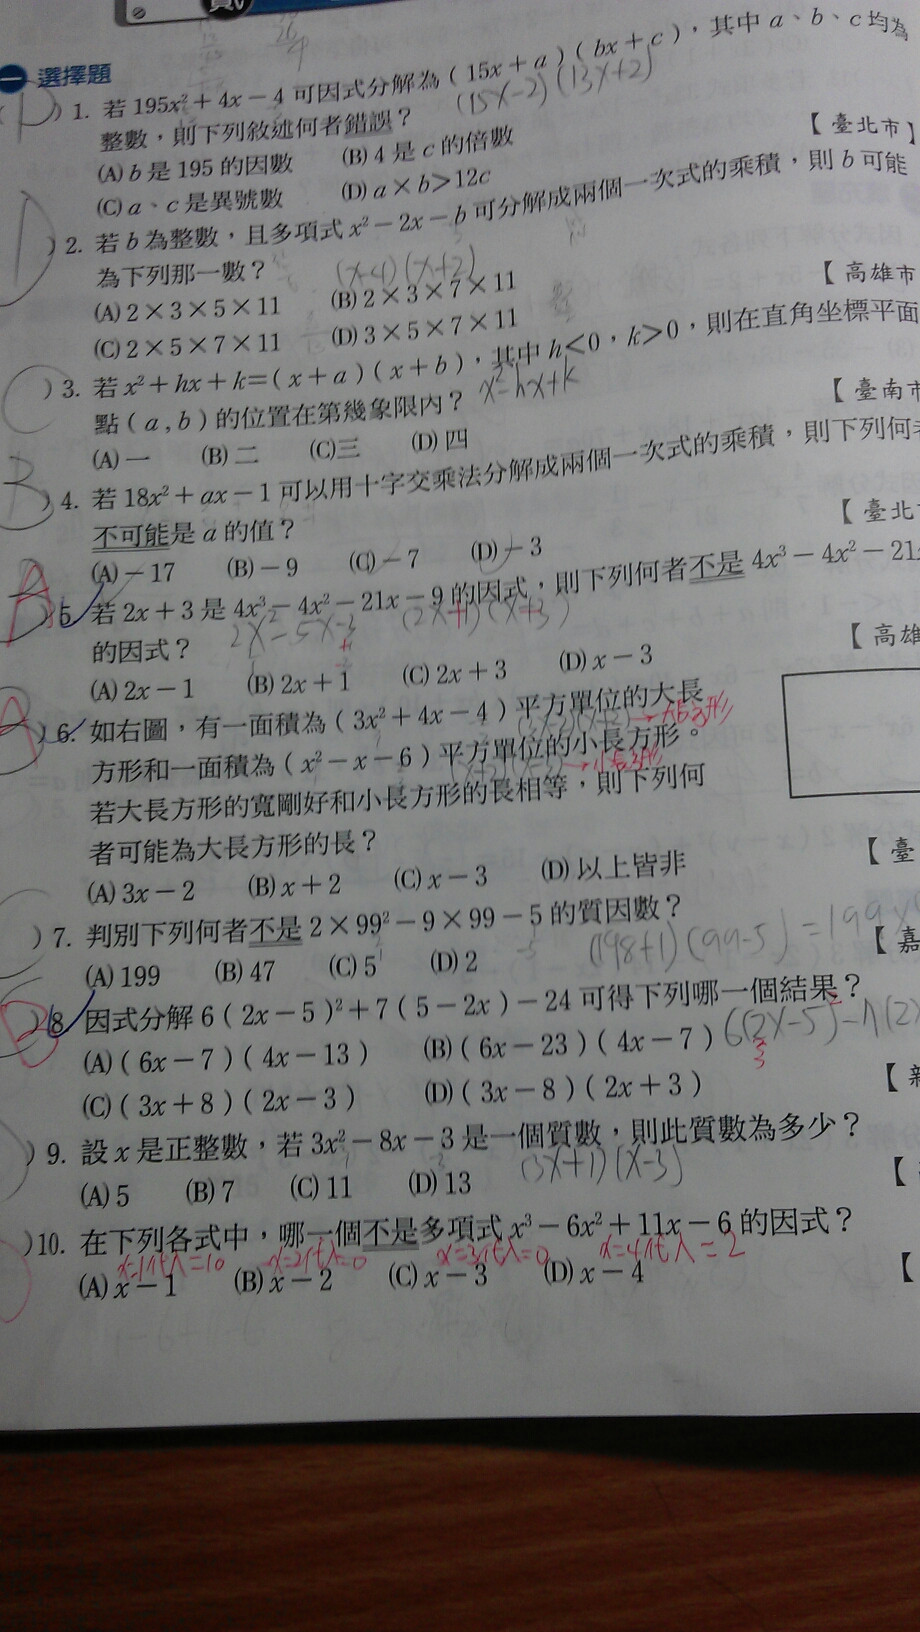 一 選擇題
D ) 1. 若195x²+4x-4可因式分解為(15x+a)(bx+c),其中a、b、c均為
(15x-2)(13x+2)
整數,則下列敘述何者錯誤?
【臺北市】
(A) b是195的因數 (B) 4是c的倍數
(C) a、c是異號數 (D) a×b>12c
D ) 2. 若b為整數,且多項式x²-2x-b可分解成兩個一次式的乘積,則b可能
為下列那一數? (x+4)(x+2)
【高雄市
(A) 2×3×5×11 (B) 2×3×7×11
(C) 2×5×7×11 (D) 3×5×7×11
C ) 3. 若x²+hx+k=(x+a)(x+b),其中h<0,k>0,則在直角坐標平面
x²-hx+k
點(a,b)的位置在第幾象限內?
【臺南市
(A) 一 (B) 二 (C) 三 (D) 四
B ) 4. 若18x²+ax-1可以用十字交乘法分解成兩個一次式的乘積,則下列何
不可能是a的值?
【臺北
(A) -17 (B) -9 (C) -7 (D) -3
A ) 5. 若2x+3是4x³-4x²-21x-9的因式,則下列何者不是4x³-4x²-21
2x²-5x-3 (2x+1)(x+3)
的因式?
【高雄
(A) 2x-1 (B) 2x+1 (C) 2x+3 (D) x-3
A ) 6. 如右圖,有一面積為(3x²+4x-4)平方單位的大長
(3x-2)(x+2)→大長方形
方形和一面積為(x²-x-6)平方單位的小長方形。
(x+2)(x-3)→小長方形
若大長方形的寬剛好和小長方形的長相等,則下列何
者可能為大長方形的長?
【臺
(A) 3x-2 (B) x+2 (C) x-3 (D) 以上皆非
) 7. 判別下列何者不是2×99²-9×99-5的質因數?
(198+1)(99-5)=199×
【嘉
(A) 199 (B) 47 (C) 5 (D) 2
B ) 8. 因式分解6(2x-5)²+7(5-2x)-24可得下列哪一個結果?
6(2x-5)²-7(2
(A) (6x-7)(4x-13) (B) (6x-23)(4x-7)
(C) (3x+8)(2x-3) (D) (3x-8)(2x+3)
【新
) 9. 設x是正整數,若3x²-8x-3是一個質數,則此質數為多少?
(3x+1)(x-3)
【
(A) 5 (B) 7 (C) 11 (D) 13
) 10. 在下列各式中,哪一個不是多項式x³-6x²+11x-6的因式?
x=1代入=10 x=2代入=0 x=3代入=0 x=4代入=2
(A) x-1 (B) x-2 (C) x-3 (D) x-4
【